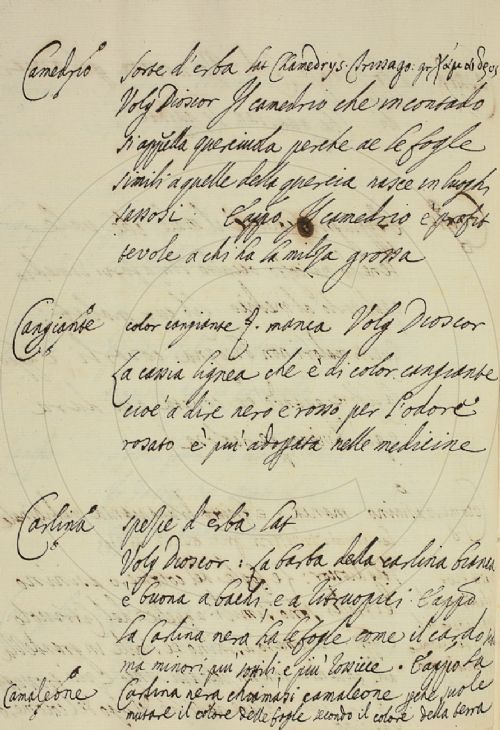 Camedrio sorte d'erba lat Chamedrys. Trissago. gr. χάμαιδρυς
Volg Dioscor Il camedrio che in contado
si appella querciuola perche ae le fogle
simili a quelle della quercia nasce in luoghi
sassosi. E appo. Il camedrio è profit
tevole a chi ha la milza grossa
Cangiante color cangiante manca Volg Dioscor
La cassia lignea che è di color cangiante
cioè a dire nero e rosso per l'odore
rosato è piu adoprata nelle medicine
Carlina spezie d'erba lat
Volg Dioscor: La barba della carlina bianca
è buona a bachi e a litruopici E appo
la Carlina nera ha le fogle come il cardo
ma minori piu sottili e piu rossicce. E appo La
Camaleone Carlina nera chiamasi camaleone perche vuole
mutare il colore delle fogle secondo il colore della terra